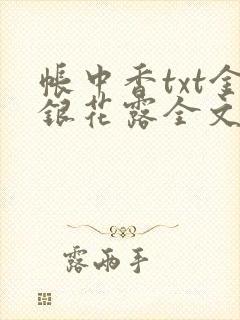 帐中香txt金
银花露全文
露两手